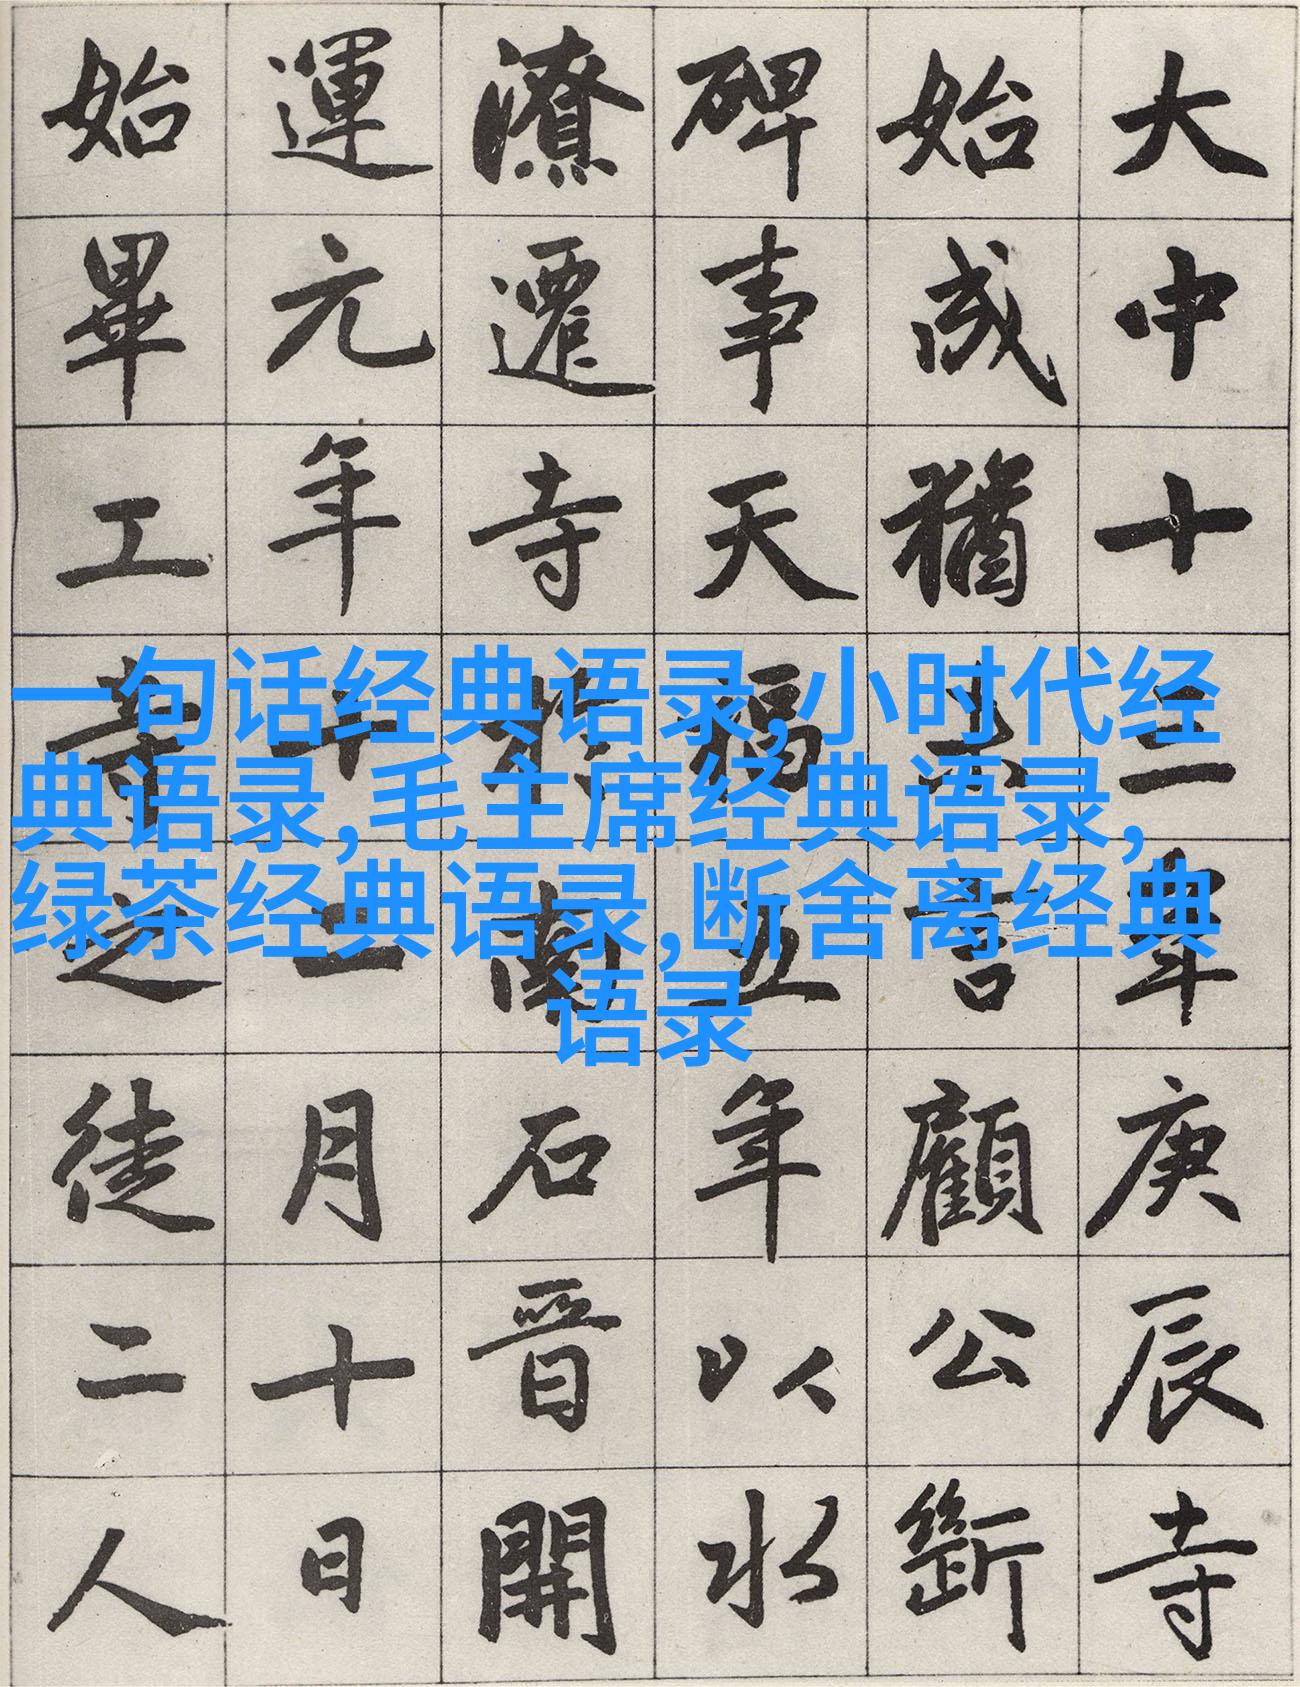 大中十三年庚辰寺
始成猶未言顧公斷
碑事天福五年以水
潦遷寺於南石晉開
運元年十二月十日
始畢工寺之徒二人
一句话经典语录,小时代经
典语录,毛主席经典语录,
绿茶经典语录,断舍离经典
语录